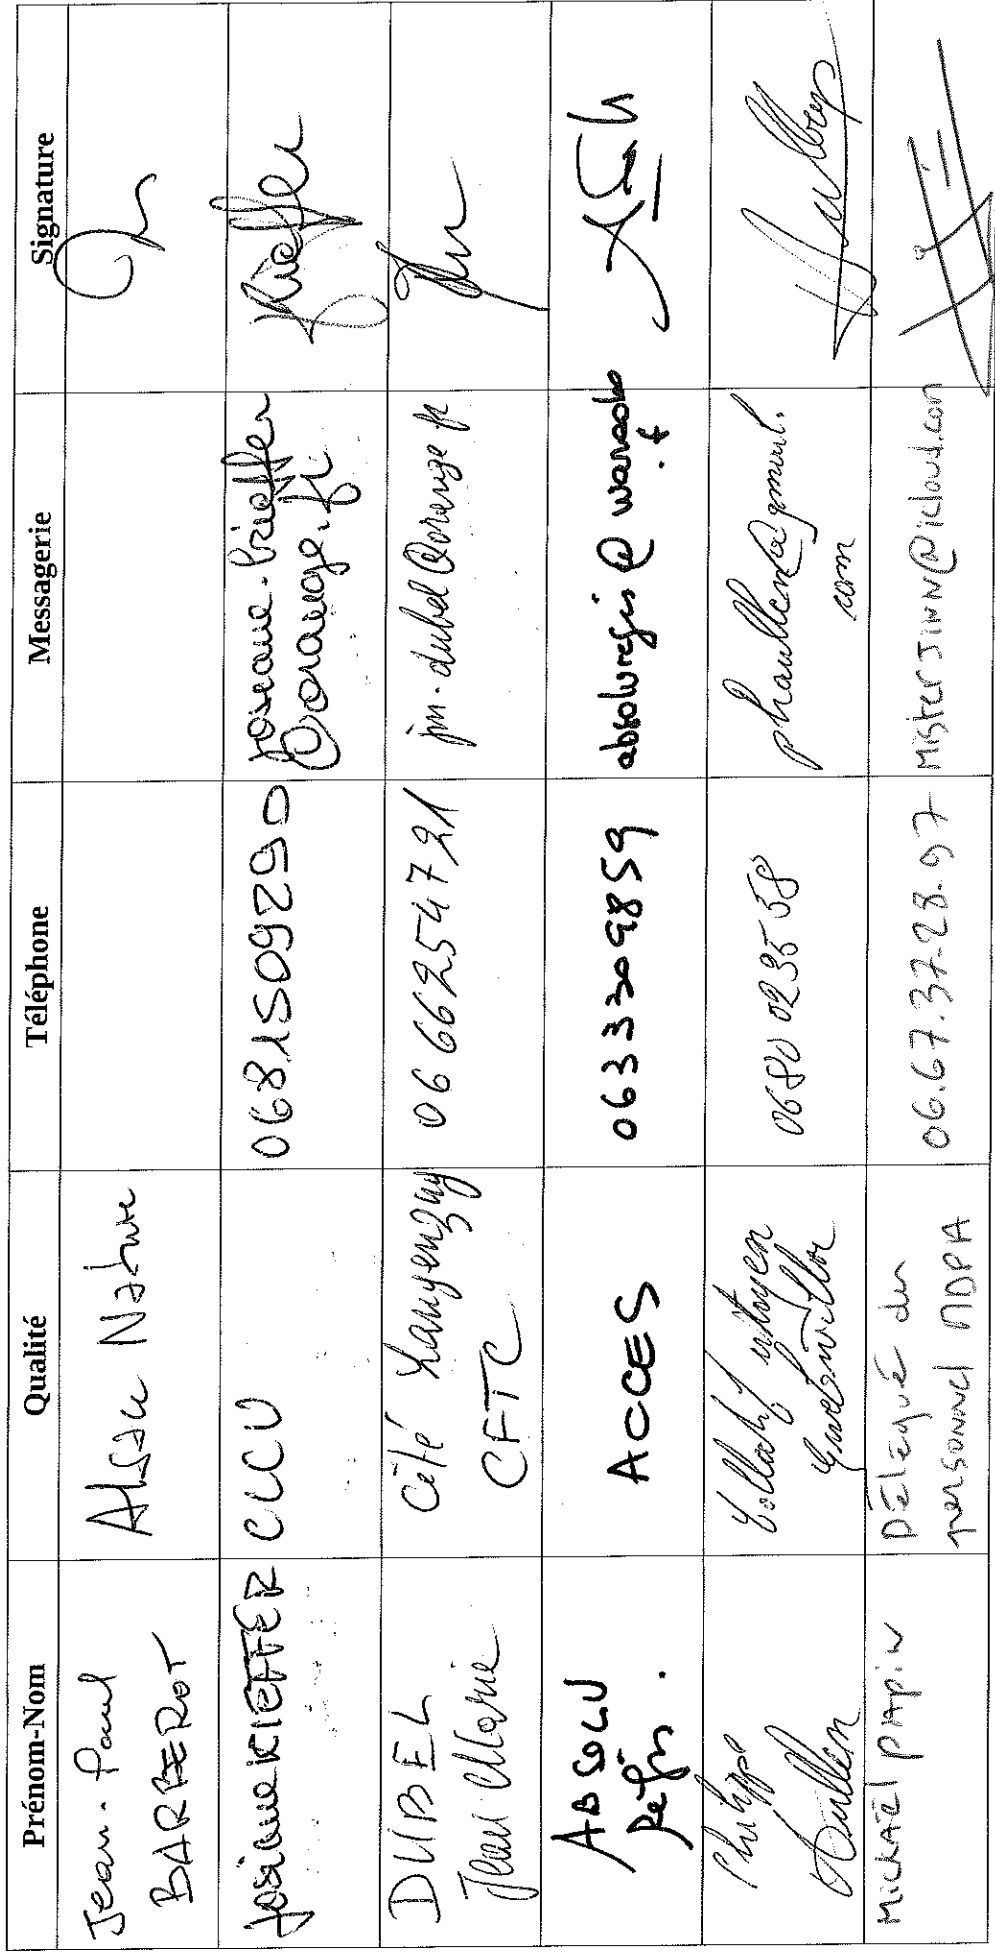 Prénom-Nom Qualité Téléphone Messagerie Signature
Jean-Paul
BARBEROT
Alsace Nature
Josiane KIEFFER
CLCV
0681509290
josiane.kieffer
@orange.fr
DUBEL
Jean Marie
CFTC
0666254721
jm.dubel@orange.fr
ABSOLU
Régis.
ACCES
0633309859
absoluregis@wanadoo
.f
Philippe
Aullen
Collectif citoyen
0680023558
phaullen@gmail.
com
MICKAËL PAPIN
Délégué du
personnel MDPA
06.67.37.28.97
MisterJinn@icloud.com